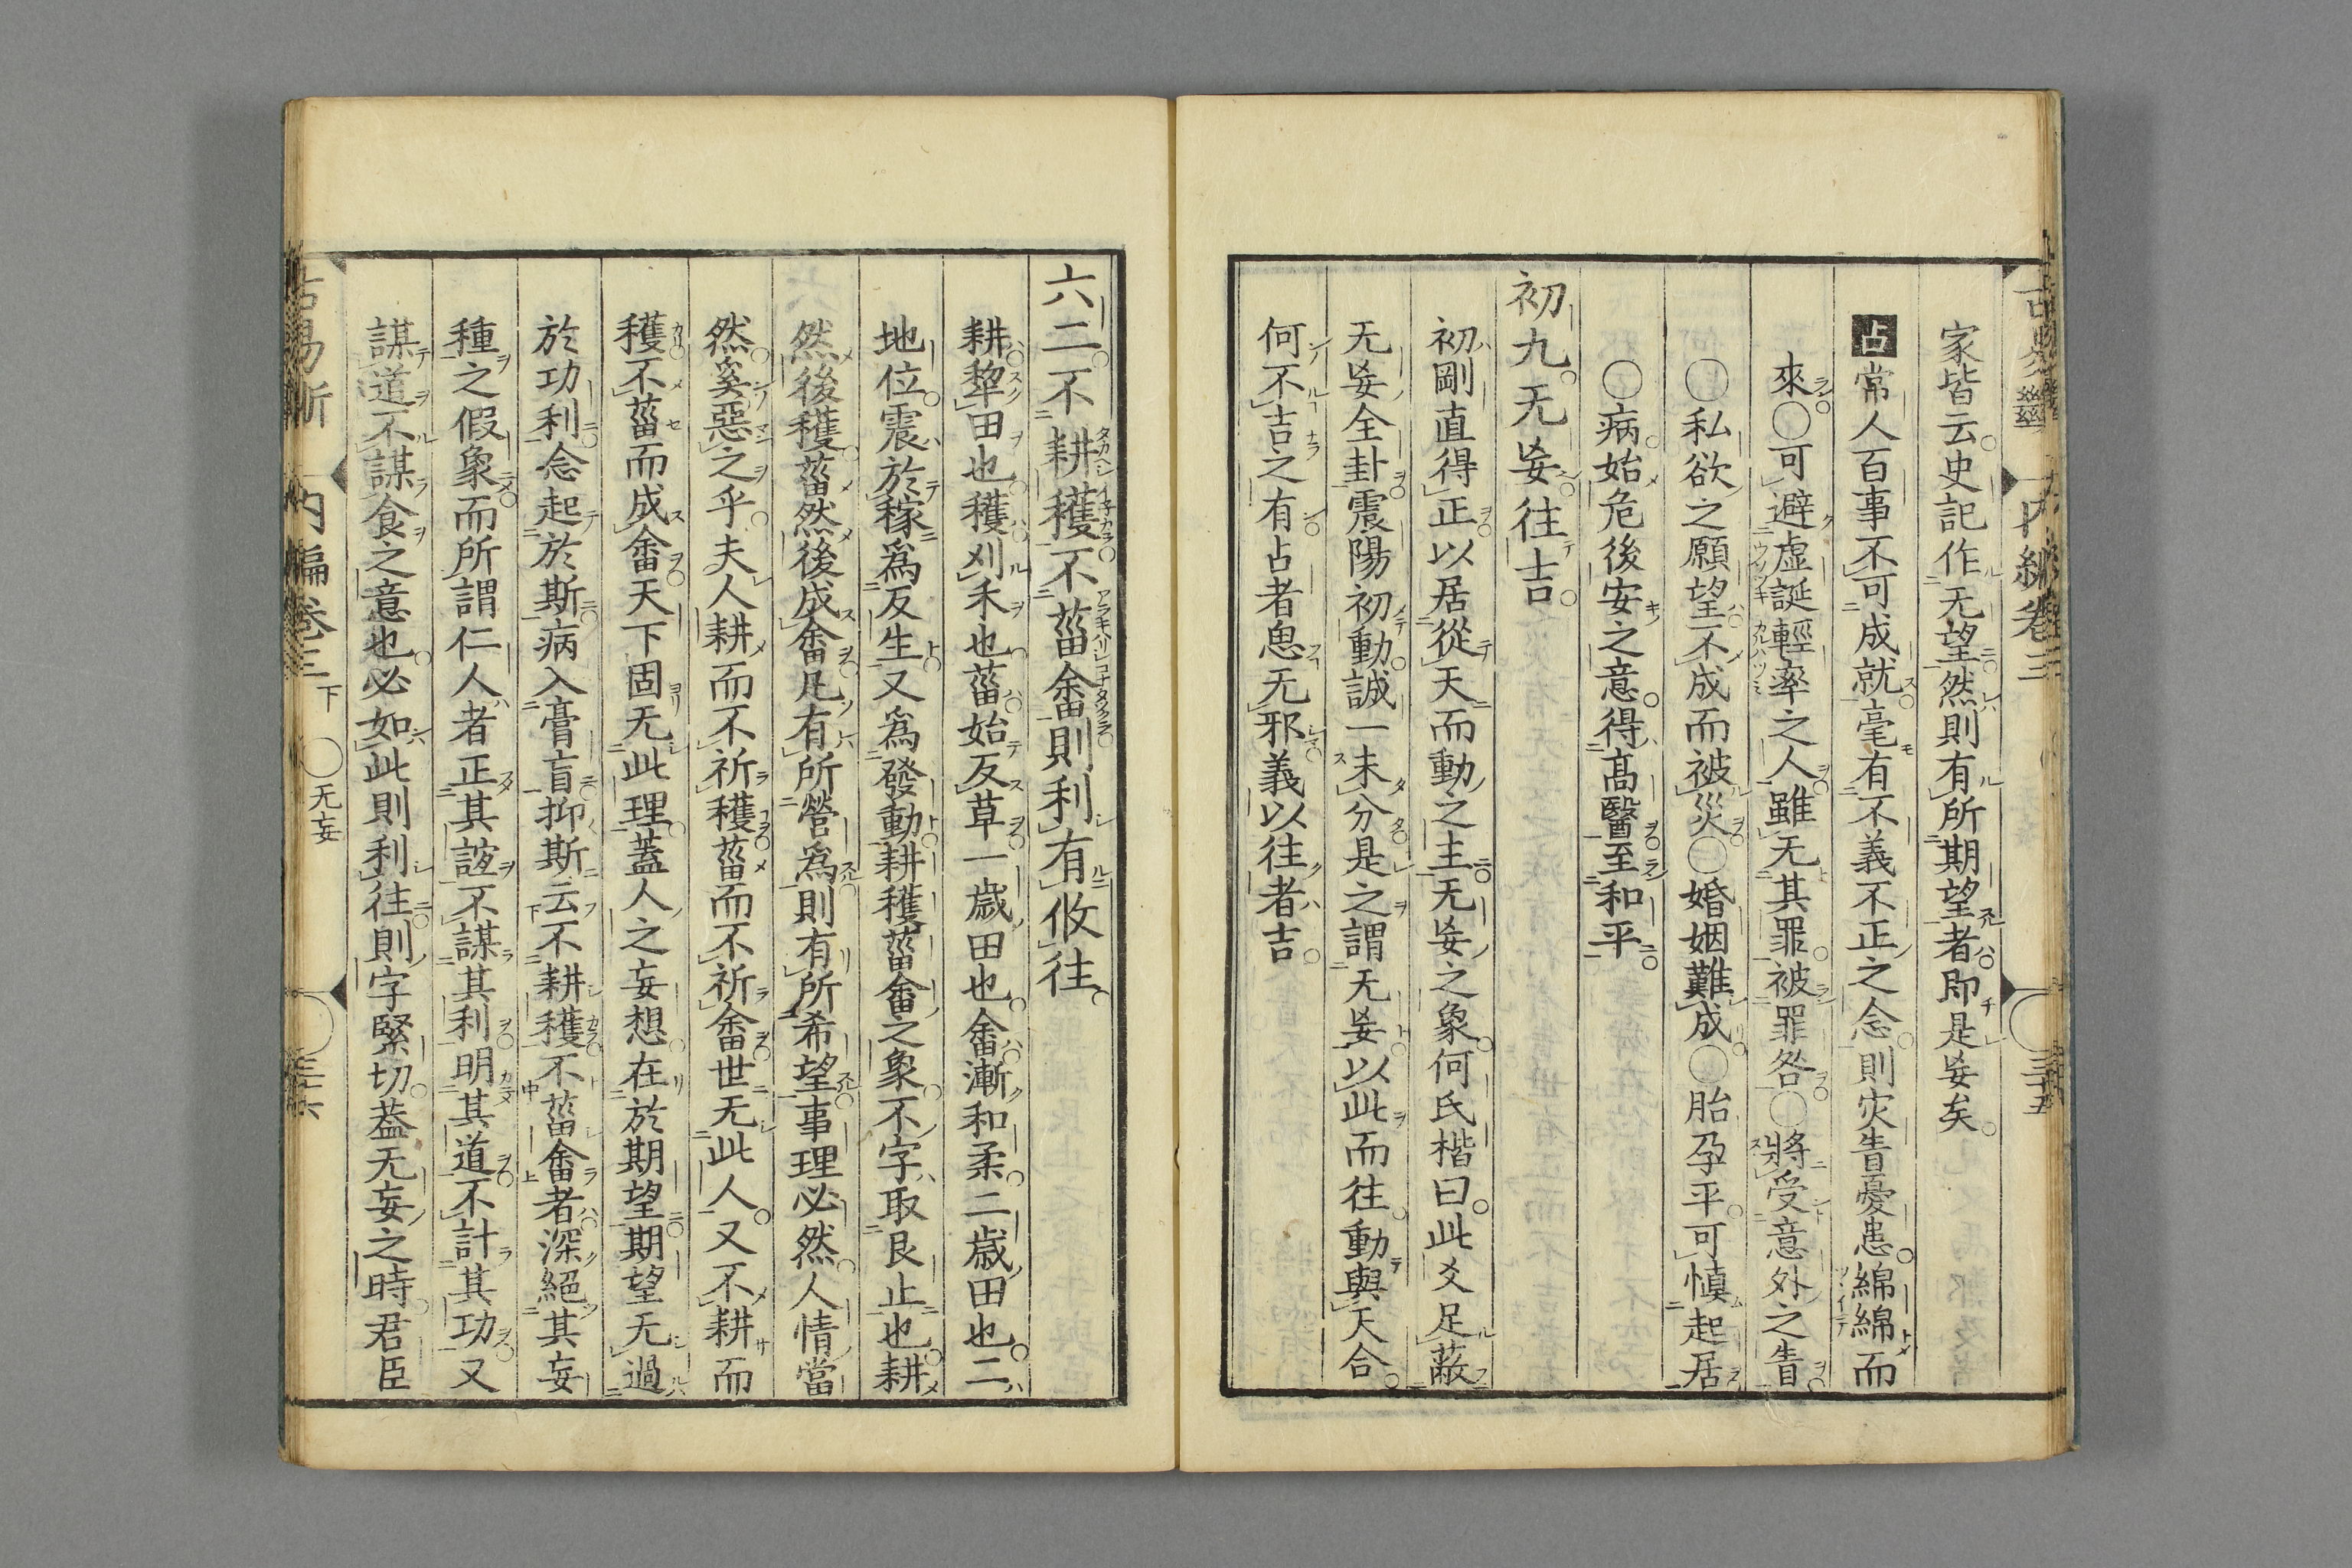 家皆云史記作无望然則有所期望者即是妄矣
占常人百事不可成就毫有不義不正之念則灾眚憂患綿綿而
來○可避虛誕輕率之人雖无其罪被罪咎○將受意外之眚
○私欲之願望不成而被災○婚姻難成○胎孕平可慎起居
○病始危後安之意得髙醫至和平
初九无妄往吉
初剛直得正以居從天而動之主无妄之象何氏楷曰此爻足蔽
无妄全卦震陽初動誠一未分是之謂无妄以此而往動與天合
何不吉之有占者思无邪義以往者吉
六二不耕穫不菑畬則利有攸往
耕犂田也穫刈禾也菑始反草一歳田也畬漸和柔二歳田也二
地位震於稼爲反生又爲發動耕穫菑畬之象不字取艮止也耕
然後穫菑然後成畬凡有所營爲則有所希望事理必然人情當
然奚惡之乎夫人耕而不祈穫菑而不祈畬世无此人又不耕而
穫不菑而成畬天下固无此理蓋人之妄想在於期望期望无過
於功利念起於斯病入膏肓抑斯云不耕穫不菑畬者深絕其妄
種之假象而所謂仁人者正其誼不謀其利明其道不計其功又
謀道不謀食之意也必如此則利往則字緊切葢无妄之時君臣
古易斷 内編卷三下 ○无妄 三十六